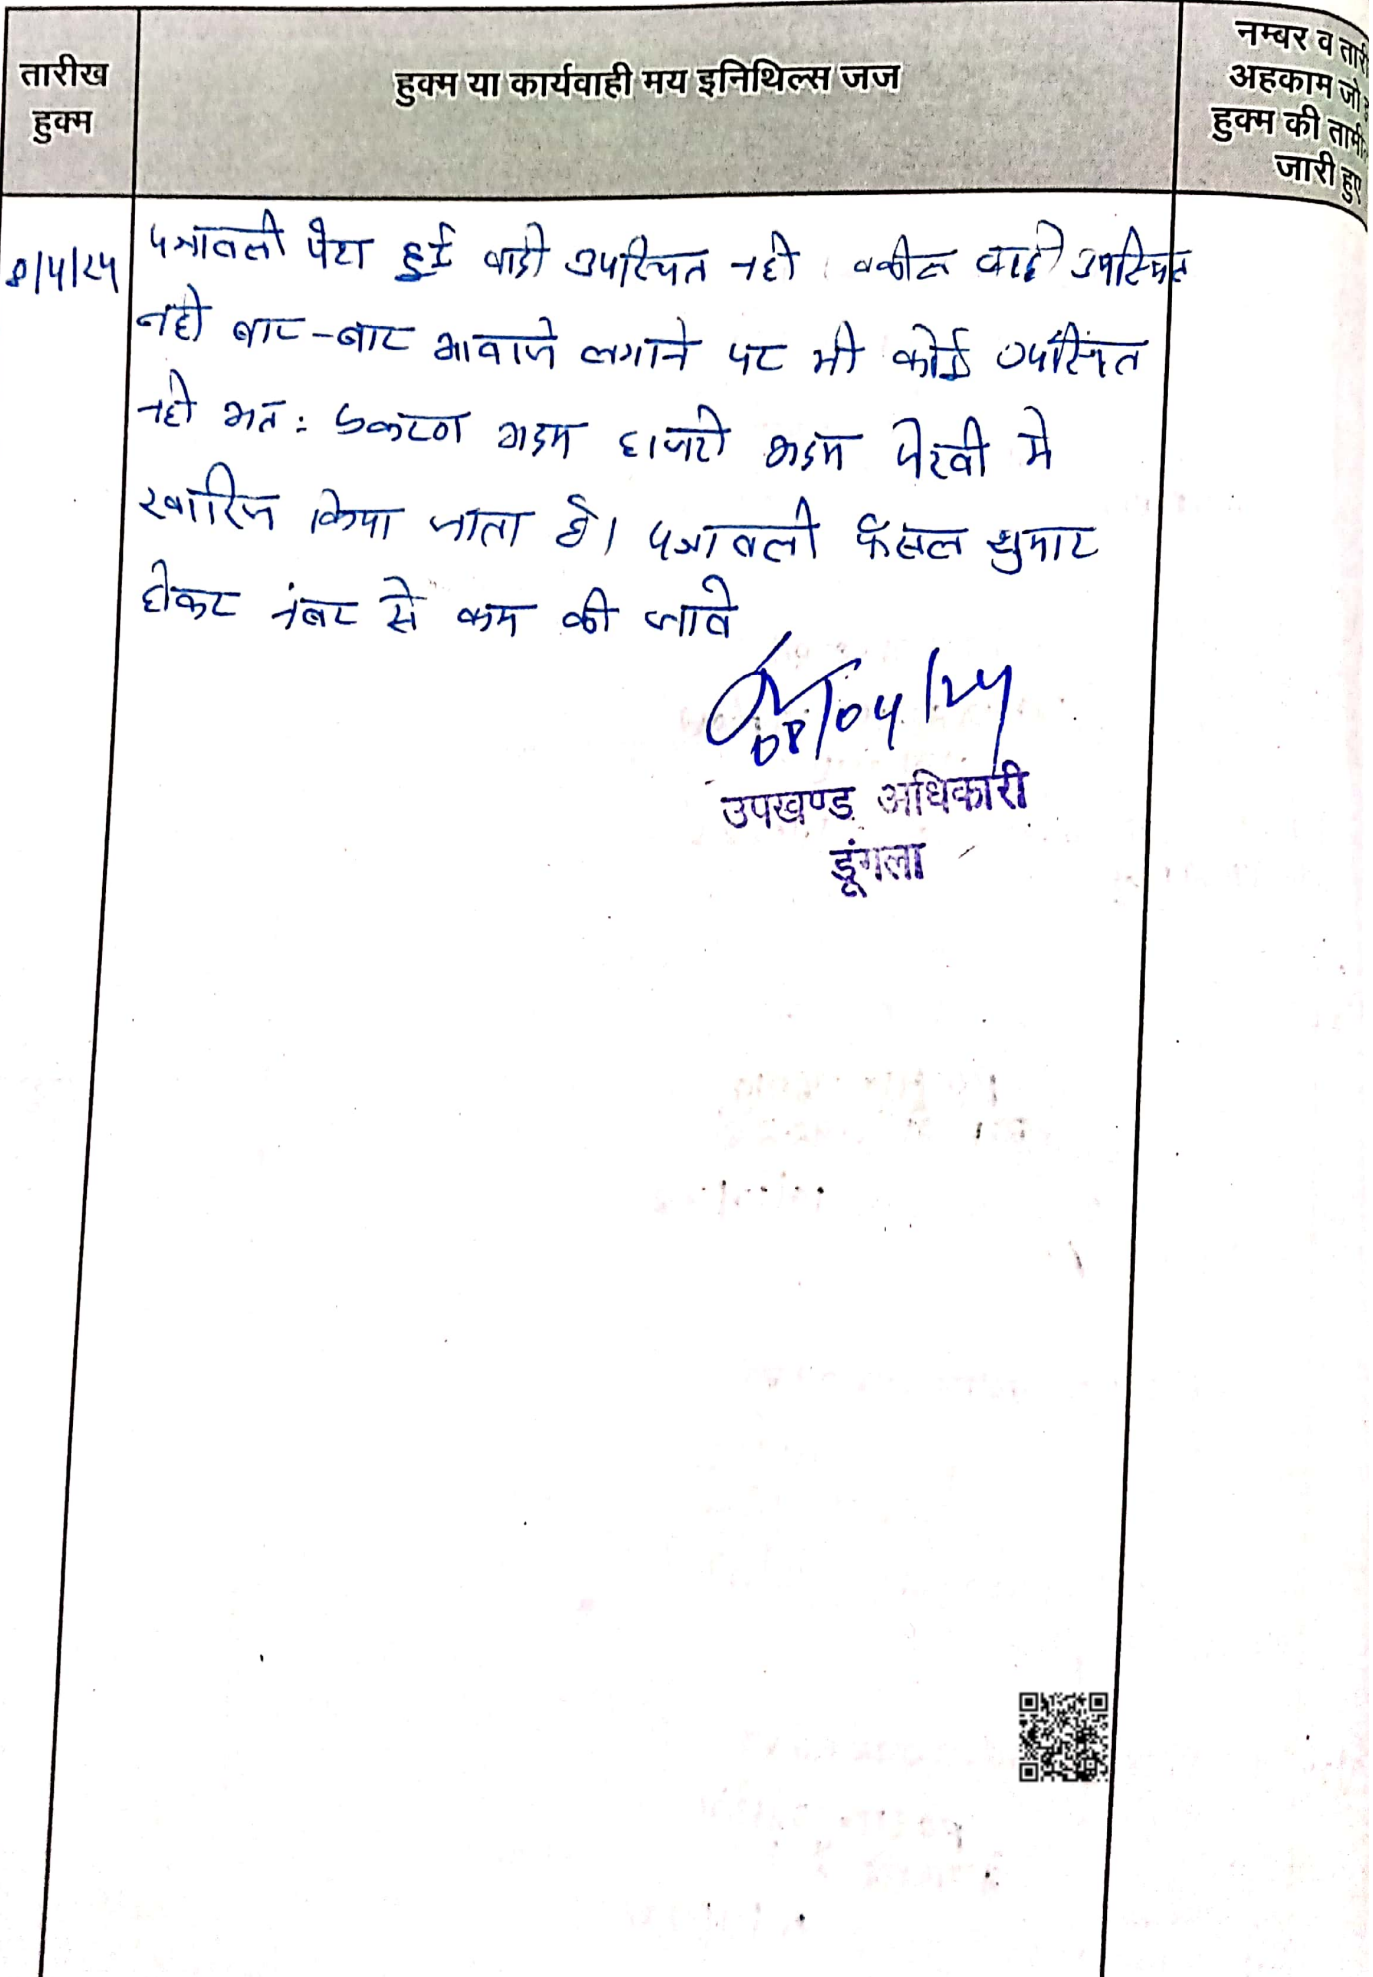 तारीख
हुक्म
हुक्म या कार्यवाही मय इनिथिल्स जज
नम्बर व तारी
अहकाम जो इ
हुक्म की तामी
जारी हुए
8/4/24
पत्रावली पेश हुई वादी उपस्थित नही। वकील वादी उपस्थित
नही बार-बार आवाजे लगाने पर भी कोई उपस्थित
नही अत: प्रकरण अदम हाजरी अदम पेरवी मे
खारिज किया जाता है। पत्रावली फैसल शुमार
होकर नंबर से कम की जावे
08/04/24
उपखण्ड अधिकारी
डूंगला